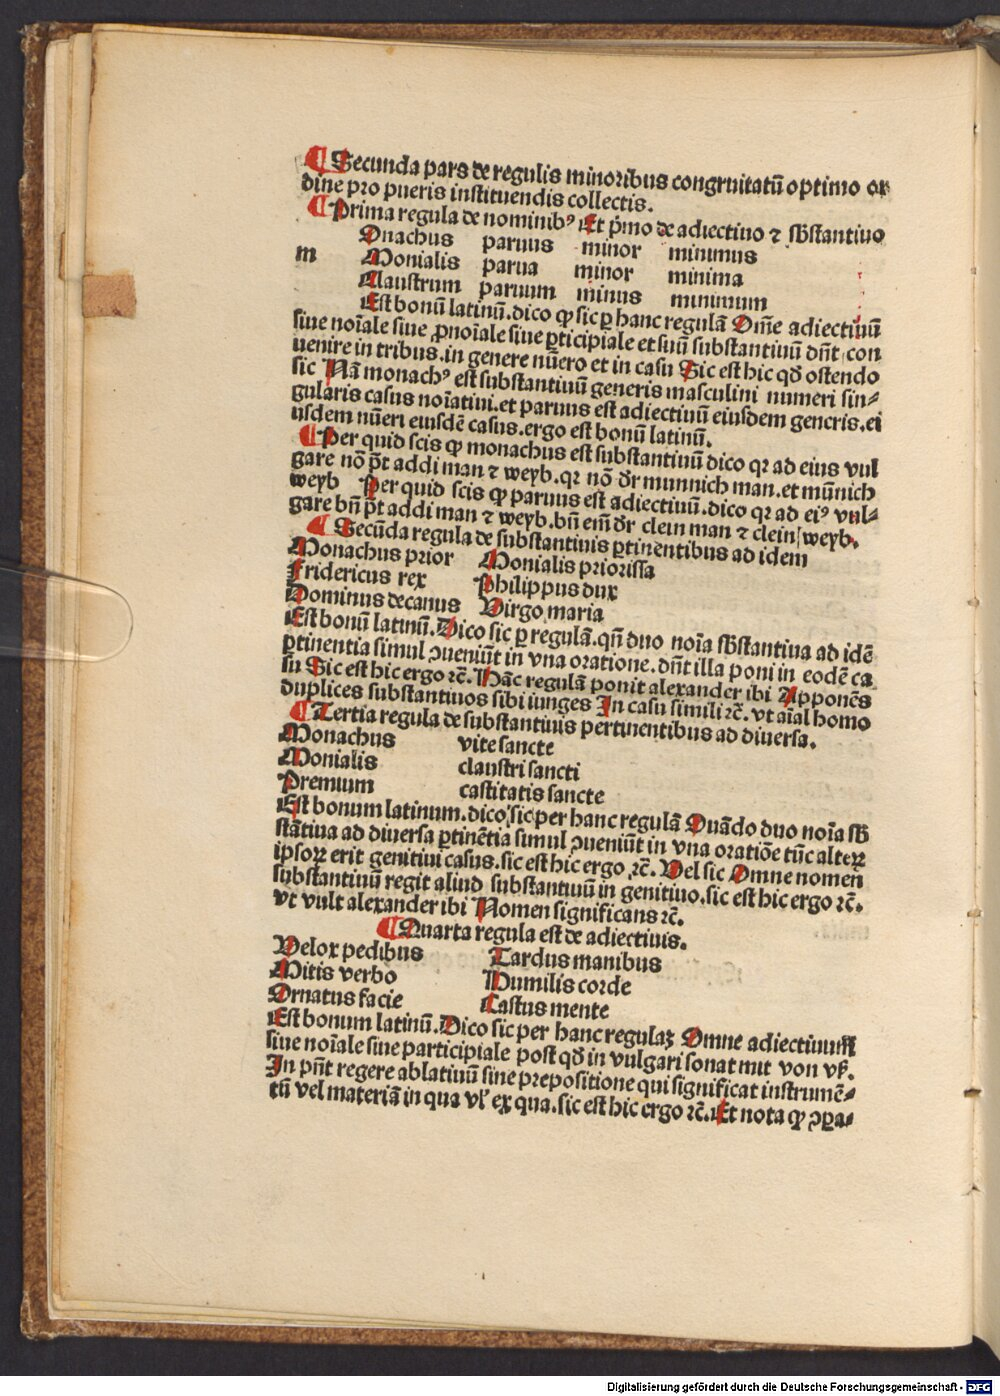 ¶ Secunda pars de regulis minoribus congruitatū optimo or
dine pro pueris instituendis collectis.
¶ Prima regula de nominibꝰ Et p̄mo de adiectiuo ⁊ sb̄stantiuo
Onachus paruus minor minimus
m Monialis parua minor minima
Claustrum paruum minus minimum
Est bonū latinū. dico ꝙ sic ꝑ hanc regulā Om̄e adiectiuū
siue noīale siue ꝓnoīale siue ꝑticipiale et suū substantiuū dn̄t con
uenire in tribus. in genere nūero et in casu Sic est hic qđ ostendo
sic Nā monachꝰ est substantiuū generis masculini numeri sin⸗
gularis casus noīatiui. et paruus est adiectiuū eiusdem generis. ei
usdem nūeri eiusdē casus. ergo est bonū latinū.
¶ Per quid scis ꝙ monachus est substantiuū dico qꝛ ad eius vul
gare nō p̄t addi man ⁊ weyb. qꝛ nō dr̄ munnich man. et mūnich
weyb Per quid scis ꝙ paruus est adiectiuū. dico qꝛ ad eiꝰ vul⸗
gare bn̄ p̄t addi man ⁊ weyb. bn̄ em̄ dr̄ clein man ⁊ clein weyb.
¶ Secūda regula de substantiuis ꝑtinentibus ad idem
Monachus prior Monialis priorissa
Fridericus rex Philippus dux
Dominus decanus Virgo maria
Est bonū latinū. Dico sic ꝑ regulā. qn̄ duo noīa sb̄stantiua ad idē
ꝑtinentia simul ꝯueniūt in vna oratione. dn̄t illa poni in eodē ca
su Sic est hic ergo ⁊c̄. Hāc regulā ponit alexander ibi Apponēs
duplices substantiuos sibi iunges In casu simili ⁊c̄. vt aīal homo
¶ Tertia regula de substantiuis pertinentibus ad diuersa.
Monachus vite sancte
Monialis claustri sancti
Premium castitatis sancte
Est bonum latinum. dico sic per hanc regulā Quādo duo noīa sb̄
stātiua ad diuersa ꝑtinētia simul ꝯueniūt in vna oratiōe tūc alterꝝ
ipsoꝝ erit genitiui casus. sic est hic ergo ⁊c̄. Vel sic Omne nomen
substantiuū regit aliud substantiuū in genitiuo. sic est hic ergo ⁊c̄.
vt vult alexander ibi Nomen significans ⁊c̄.
¶ Quarta regula est de adiectiuis.
Velox pedibus Tardus manibus
Mitis verbo Humilis corde
Ornatus facie Castus mente
Est bonum latinū. Dico sic per hanc regulaꝫ Omne adiectiuum
siue noīale siue participiale post qđ in vulgari sonat mit von vß.
In pn̄t regere ablatiuū sine prepositione qui significat instrumē⸗
tū vel materiā in qua vl̓ ex qua. sic est hic ergo ⁊c̄. Et nota ꝙ ꝯꝑa⸗
Digitalisierung gefördert durch die Deutsche Forschungsgemeinschaft - DFG